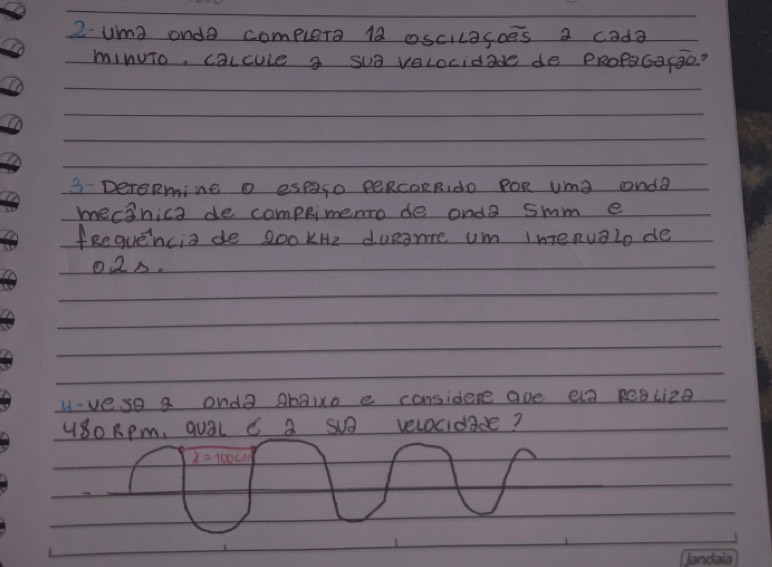 2- uma onda completa 12 oscilações a cada
minuto. calcule a sua velocidade de propagação?
3- Determine o espaço percorrido por uma onda
mecânica de comprimento de onda 5mm e
frequência de 200 KHz durante um intervalo de
0.2s.
4- veja a onda abaixo e considere que ela realiza
480 Rpm, qual é a sua velocidade?
λ = 100cm
Jandaia